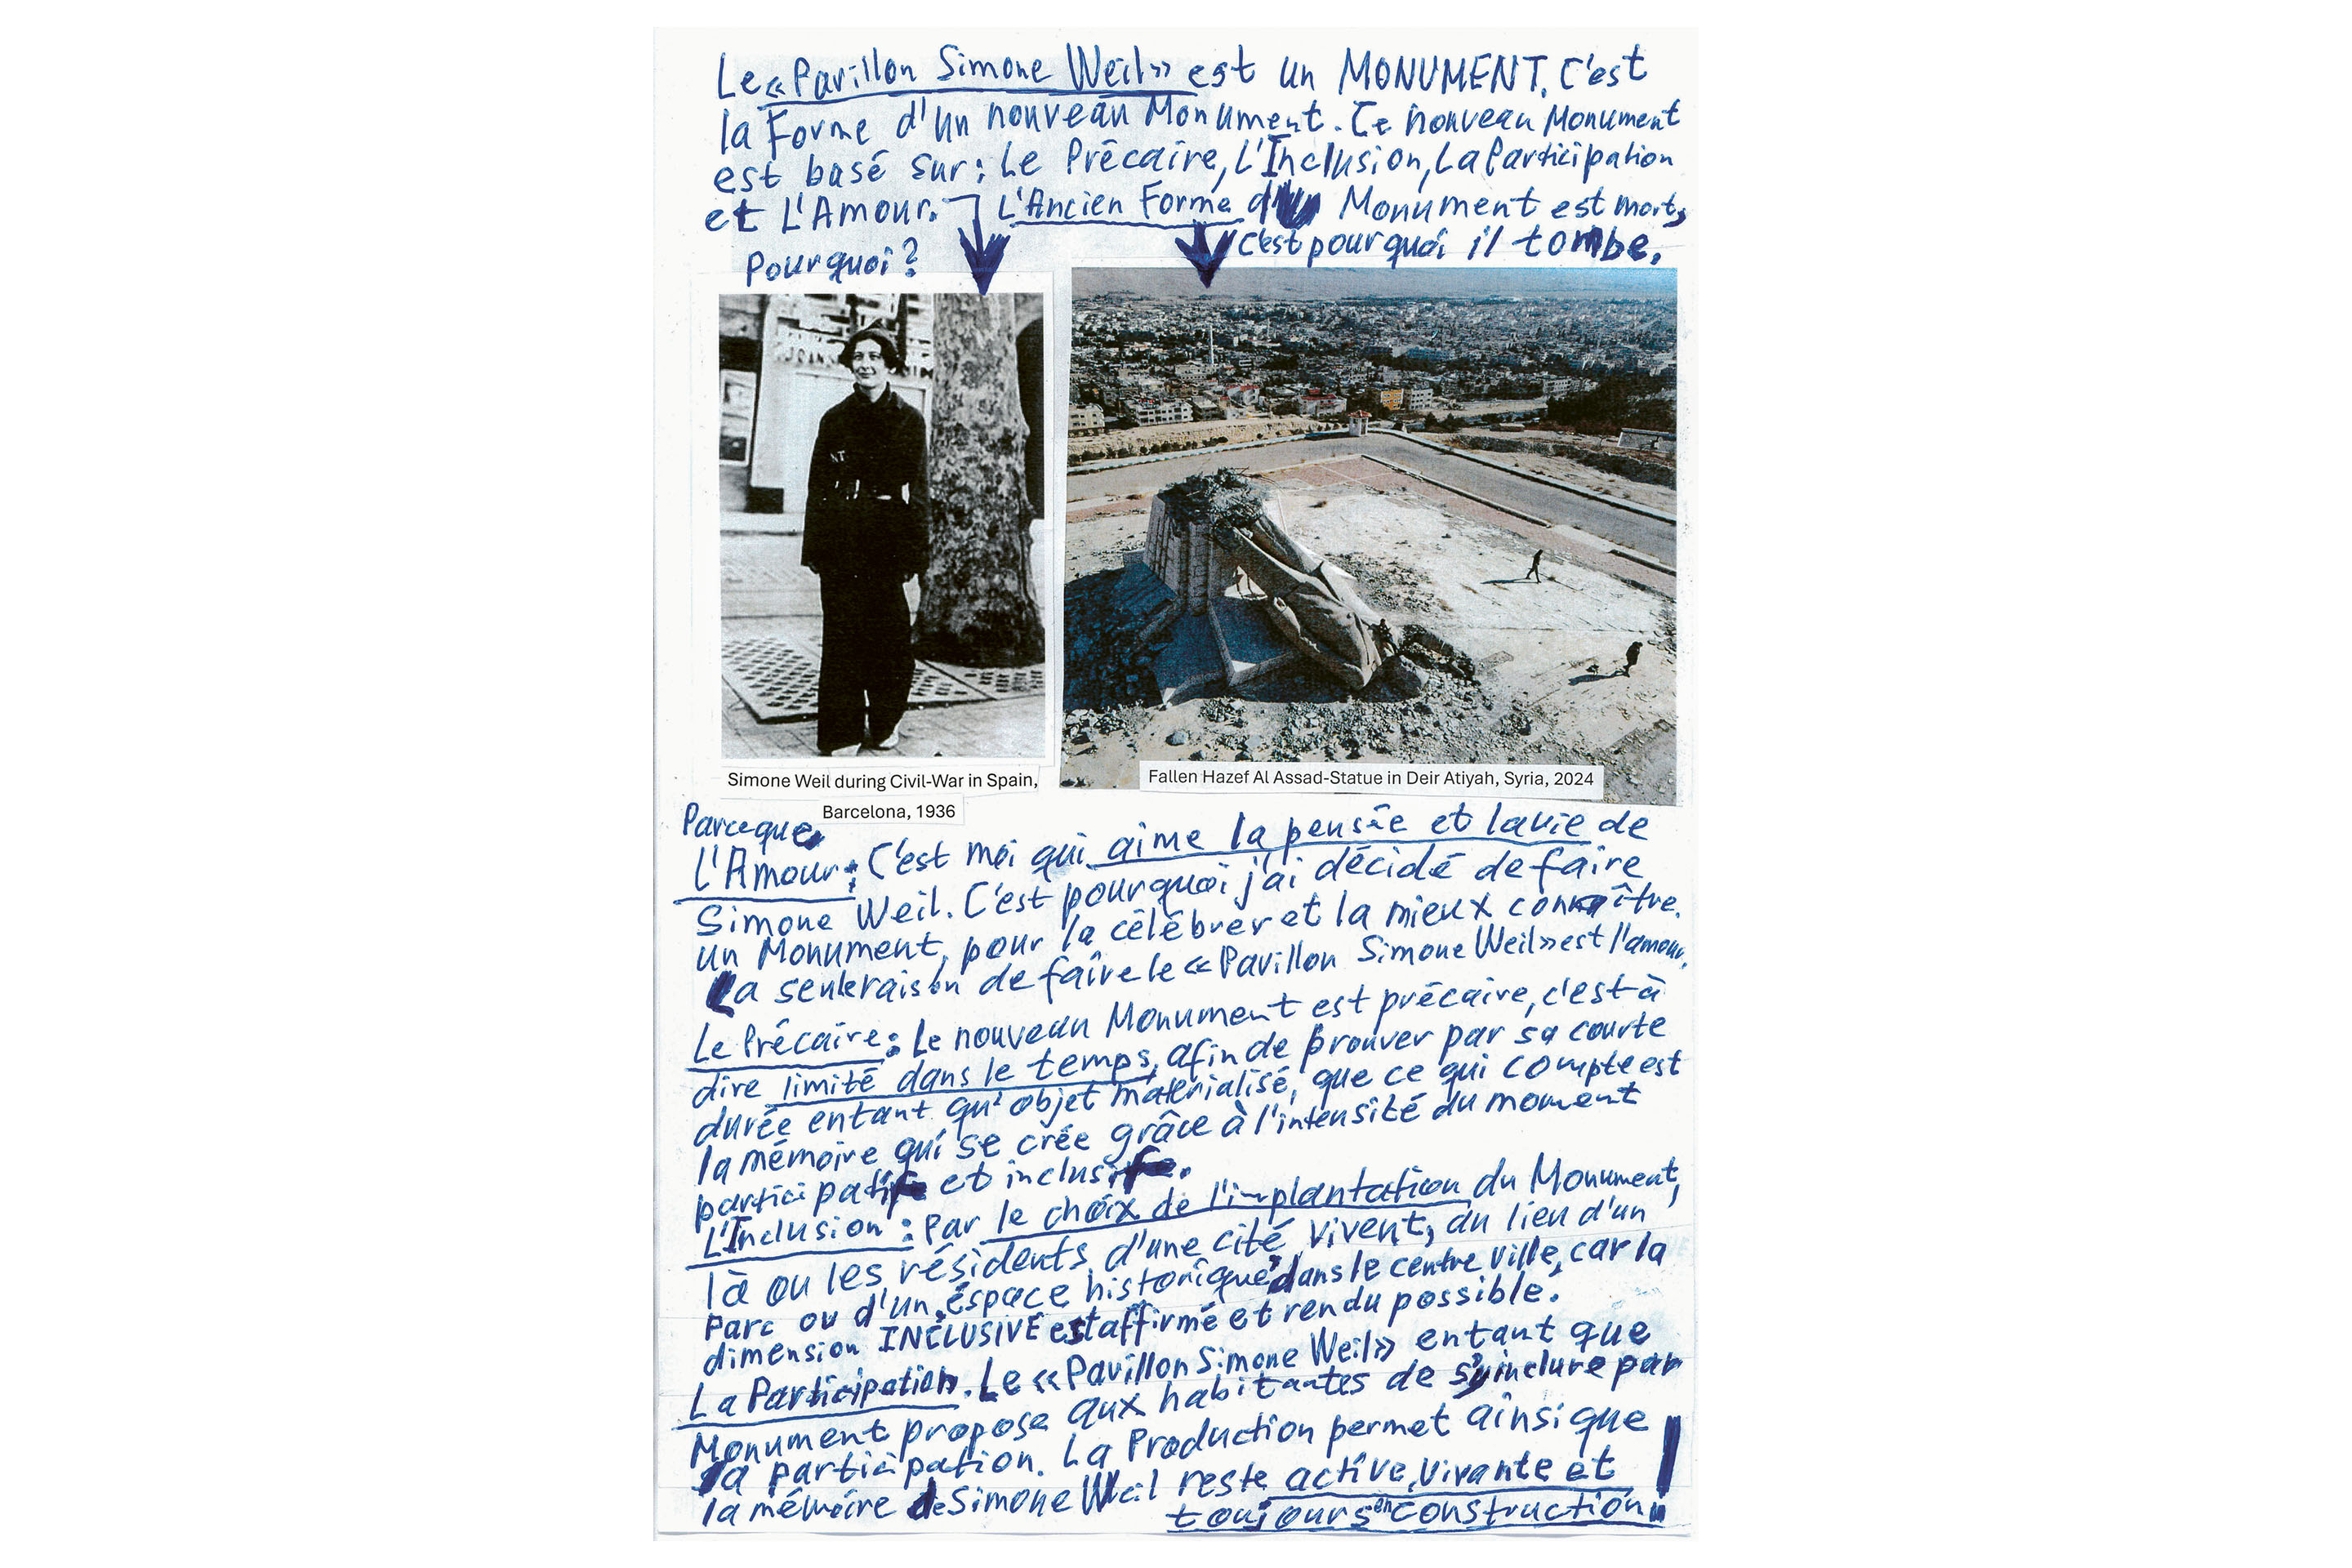 Le «Pavillon Simone Weil» est un MONUMENT. C'est
la Forme d'un nouveau Monument. Ce nouveau Monument
est basé sur: Le Précaire, L'Inclusion, La Participation
et L'Amour.
L'Ancien Forme d'un Monument est mort,
c'est pourquoi il tombe.
Pourquoi?
Simone Weil during Civil-War in Spain,
Barcelona, 1936
Fallen Hazef Al Assad-Statue in Deir Atiyah, Syria, 2024
Parceque
L'Amour: C'est moi qui aime la pensée et la vie de
Simone Weil. C'est pourquoi j'ai décidé de faire
un Monument, pour la célébrer et la mieux connaître.
La seule raison de faîre le «Pavillon Simone Weil» est l'amour.
Le Précaire: Le nouveau Monument est précaire, c'est à
dire limité dans le temps, afin de prouver par sa courte
durée entant qu'objet matérialisé, que ce qui compte est
la mémoire qui se crée grâce à l'intensité du moment
participatif et inclusif.
L'Inclusion: Par le choix de l'implantation du Monument,
là ou les résidents d'une cité vivent, du lieu d'un
Parc ou d'un éspace historique dans le centre ville, car la
dimension INCLUSIVE est affirmé et rendu possible.
La Participation. Le «Pavillon Simone Weil» entant que
Monument propose aux habitantes de s'y inclure par
la participation. La Production permet ainsi que
la mémoire de Simone Weil reste active, vivante et
toujours en construction!